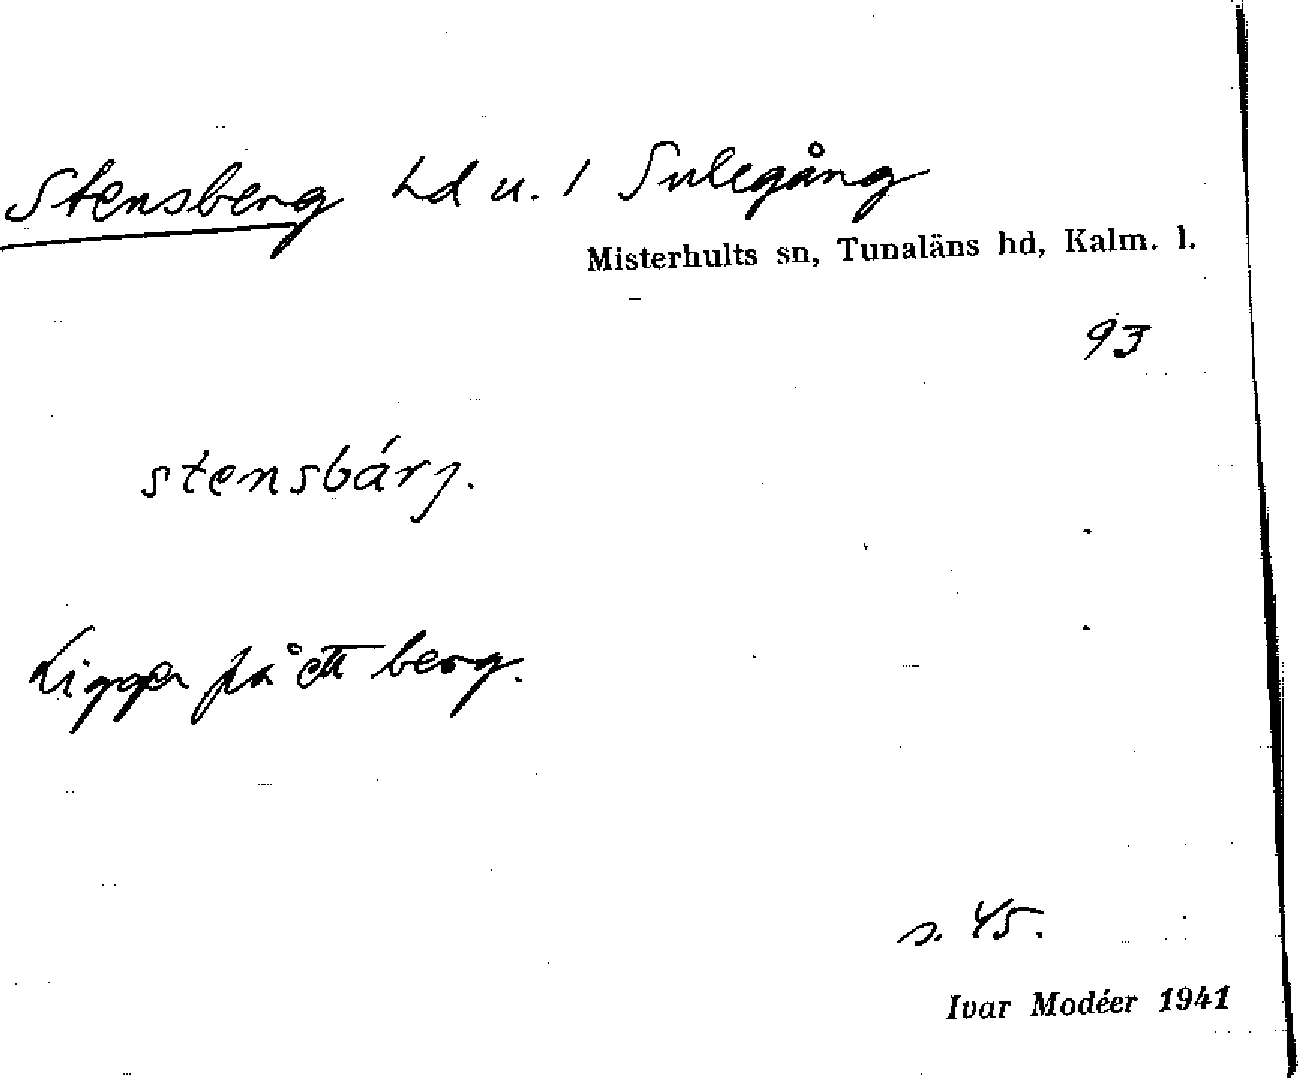 Stensberg hd u. 1 Sulegång
Misterhults sn, Tunaläns hd, Kalm. l.
93
stensbárj.
Ligger på ett berg.
s. 45.
Ivar Modéer 1941